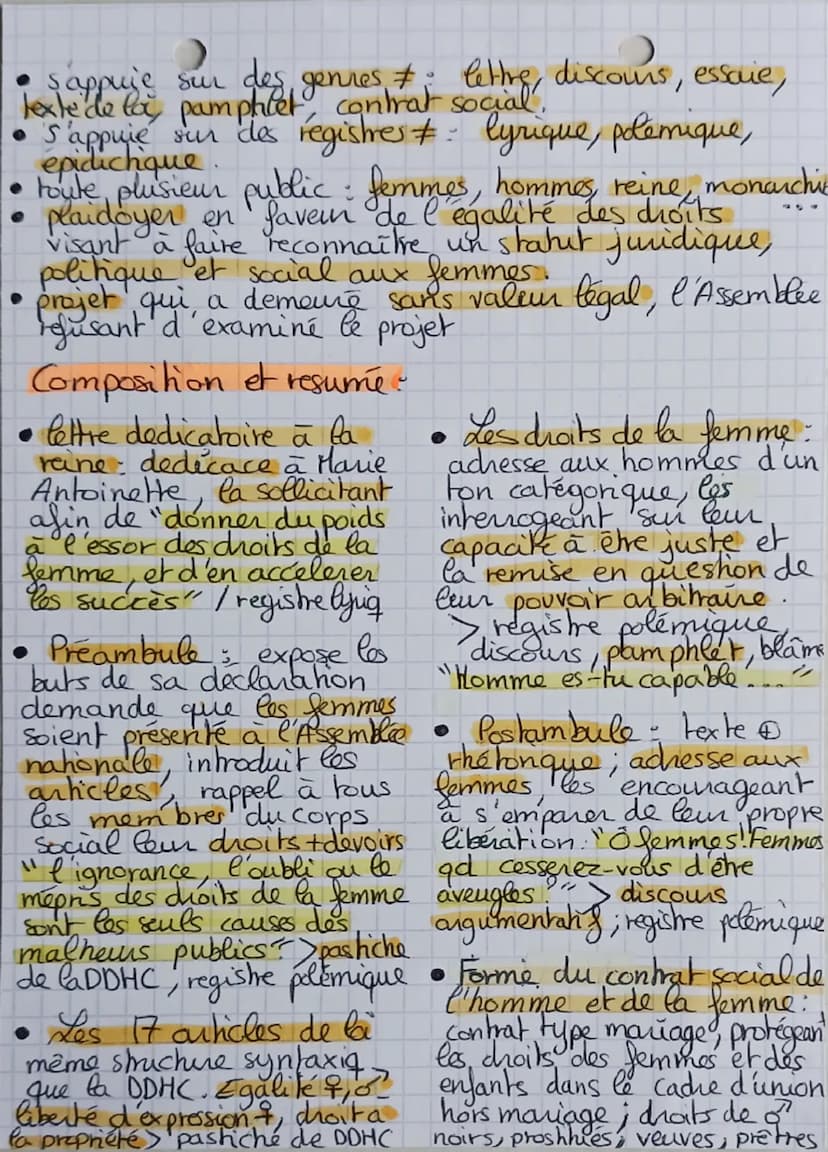 • s'appuie sur des genres ≠ : lettre, discours, essaie,
texte de loi, pamphlet, contrat social.
• s'appuie sur des registres ≠ : lyrique, polémique,
épidichque.
• toute plusieur public : femmes, hommes, reine, monarchie
...
• plaidoyer en faveur de l'égalité des droits
visant à faire reconnaître un statut juridique,
politique et social aux femmes.
• projet qui a demeuré sans valeur légal, l'Assemblée
refusant d'examiné le projet
Composition et resumé :
• lettre dedicatoire à la
reine : dedicace à Marie
Antoinette, la sollicitant
afin de "donner du poids
à l'essor des droits de la
femme, et d'en accelerer
les succès" / registre lyriq
• Préambule : expose les
buts de sa déclaration
demande que les femmes
soient présenté à l'Assemblée
nationale, introduit les
articles, rappel à tous
les membres du corps
social leur droits + devoirs
"l'ignorance, l'oubli ou le
mépris des droits de la femme
sont les seuls causes des
malheurs publics" > pastiche
de la DDHC, registre polémique
• Les 17 articles de loi
même structure syntaxiq
que la DDHC. Egalité ♀, ♂
liberté d'expression ♀, droit a
la propriété > pastiché de DDHC
• Les droits de la femme :
adresse aux hommes d'un
ton catégorique, les
interrogeant sur leur
capacité à être juste et
la remise en question de
leur pouvoir arbitraire.
> registre polémique,
discours, pamphlet, blâme
"Homme es-tu capable...."
• Postambule : texte ⊕
rhétorique ; adresse aux
femmes, les encourageant
à s'emparer de leur propre
libération. "Ô femmes! Femmes
qd cesserez-vous d'être
aveugles?" > discours
argumentatif ; registre polémique
• Forme du contrat social de
l'homme et de la femme :
contrat type mariage, protégeant
les droits des femmes et des
enfants dans le cadre d'union
hors mariage ; droits de ♂
noirs, prostituées, veuves, prêtres